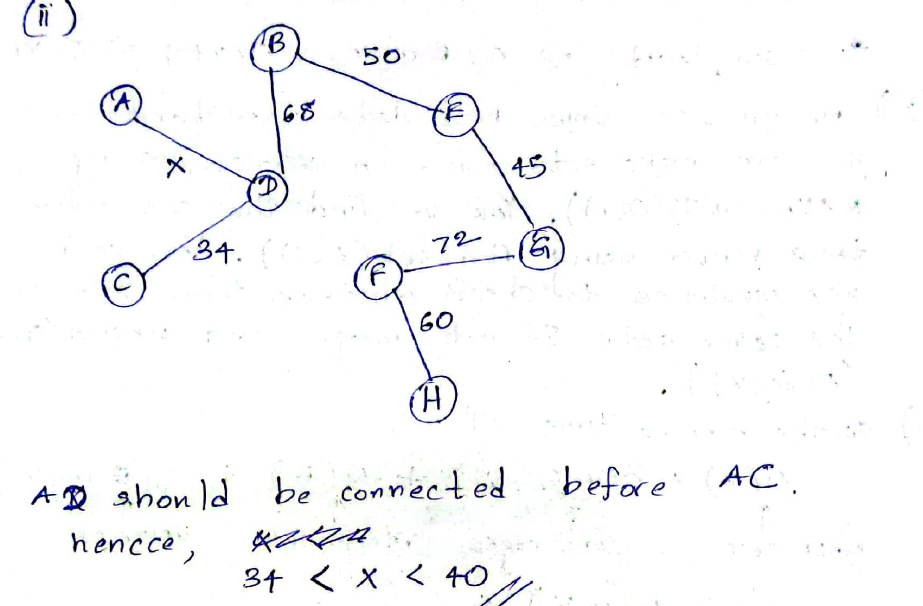 (ii)
B
50
A
68
E
X
D
45
34.
72
G
C
F
60
H
AD should be connected before AC.
hencce,
34 < x < 40 //